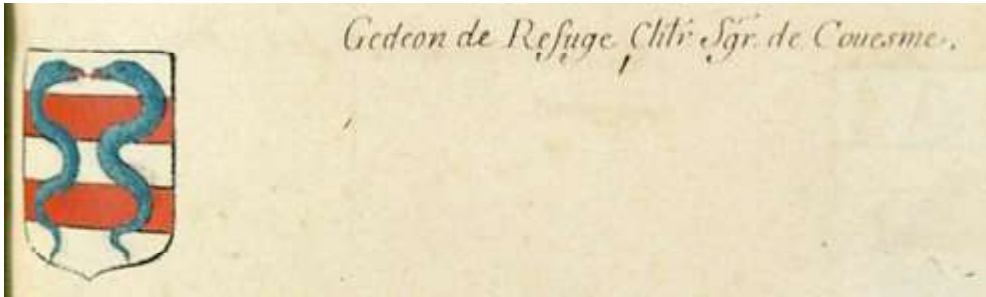 Gedeon de Refuge Chlr Sgr. de Couesme.